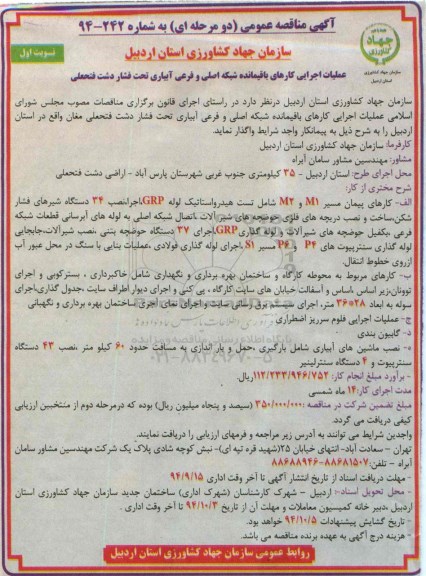 آگهی مناقصه عمومی (دو مرحله ای) به شماره ۲۴۲-۹۴
سازمان جهاد کشاورزی استان اردبیل
نوبت اول
جهاد کشاورزی
سازمان جهاد کشاورزی
استان اردبیل
عملیات اجرایی کارهای باقیمانده شبکه اصلی و فرعی آبیاری تحت فشار دشت فتحعلی
سازمان جهاد کشاورزی استان اردبیل درنظر دارد در راستای اجرای قانون برگزاری مناقصات مصوب مجلس شورای
اسلامی عملیات اجرایی کارهای باقیمانده شبکه اصلی و فرعی آبیاری تحت فشار دشت فتحعلی مغان واقع در استان
اردبیل را به شرح ذیل به پیمانکار واجد شرایط واگذار نماید.
کارفرما: سازمان جهاد کشاورزی استان اردبیل
مشاور: مهندسین مشاور سامان آبراه
محل اجرای طرح: استان اردبیل - ۳۵ کیلومتری جنوب غربی شهرستان پارس آباد - اراضی دشت فتحعلی
شرح مختری از کار:
الف- کارهای پیمان مسیر M1 و M2 شامل تست هیدرواستاتیک لوله GRP،اجرا،نصب ۳۴ دستگاه شیرهای فشار
شکن،ساخت و نصب دریچه های فلزی حوضچه های شیرآلات ،اتصال شبکه اصلی به لوله های آبرسانی قطعات شبکه
فرعی ،تکفیل حوضچه های شیرآلات و لوله گذاری GRP،اجرای ۳۷ دستگاه حوضچه بتنی ،نصب شیرآلات،جابجایی
لوله گذاری سنترپیوت های P۴ و P۶ مسیر S۱ ،اجرای لوله گذاری فولادی ،عملیات بنایی با سنگ در محل عبور آب
ازروی خطوط انتقال.
ب- کارهای مربوط به محوطه کارگاه و ساختمان بهره برداری و نگهداری شامل خاکبرداری ، بسترکوبی و اجرای
توونان،زیر اساس ،اساس و آسفالت خیابان های سایت کارگاه ، پی کنی و اجرای دیوار اطراف سایت ،جدول گذاری،اجرای
سوله به ابعاد ۲۸*۳۶ متر، اجرای سیستم برق رسانی سایت و اجرای نمای اجری ساختمان بهره برداری و نگهبانی
ج- عملیات اجرایی فلوم سرریز اضطراری
د- گابیون بندی
ه- نصب ماشین های آبیاری شامل بارگیری ،حمل و بار اندازی به مسافت حدود ۶۰ کیلو متر ،نصب ۴۳ دستگاه
سنترپیوت و ۴ دستگاه سنترلینیر
- برآورد مبلغ انجام کار: ۱۱۲/۲۳۳/۹۴۶/۷۵۲ریال.
مدت اجرای کار:۱۴ ماه شمسی
مبلغ تضمین شرکت در مناقصه :۳۵۰/۰۰۰/۰۰۰ (سیصد و پنجاه میلیون ریال) بوده که درمرحله دوم از منتخبین ارزیابی
کیفی دریافت می گردد.
واجدین شرایط می توانند به آدرس زیر مراجعه و فرمهای ارزیابی را دریافت نمایند.
تهران - سعادت آباد- انتهای خیابان ۲۵(شهید قره تپه ای)- نبش کوچه شادی پلاک یک شرکت مهندسین مشاور سامان
آبراه - تلفن:۸۸۶۸۱۵۰۷-۸۸۶۸۸۹۴۶
- مهلت دریافت اسناد از تاریخ انتشار آگهی تا آخر وقت اداری ۹۴/۹/۱۵
- محل تحویل اسناد-: اردبیل - شهرک کارشناسان (شهرک اداری) ساختمان جدید سازمان جهاد کشاورزی استان
اردبیل ،دبیر خانه کمیسیون معاملات و مهلت آن از تاریخ ۹۴/۱۰/۳ تا آخر وقت اداری .
- تاریخ گشایش پیشنهادات ۹۴/۱۰/۵ خواهد بود.
- هزینه درج آگهی به عهده برنده مناقصه می باشد.
روابط عمومی سازمان جهاد کشاورزی استان اردبیل